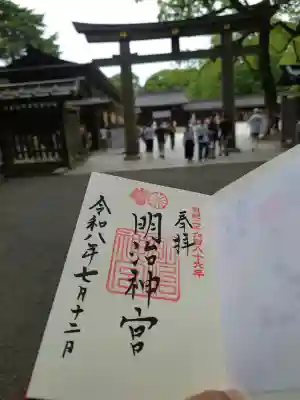 奉拝
明治神宮
令和八年七月十二日